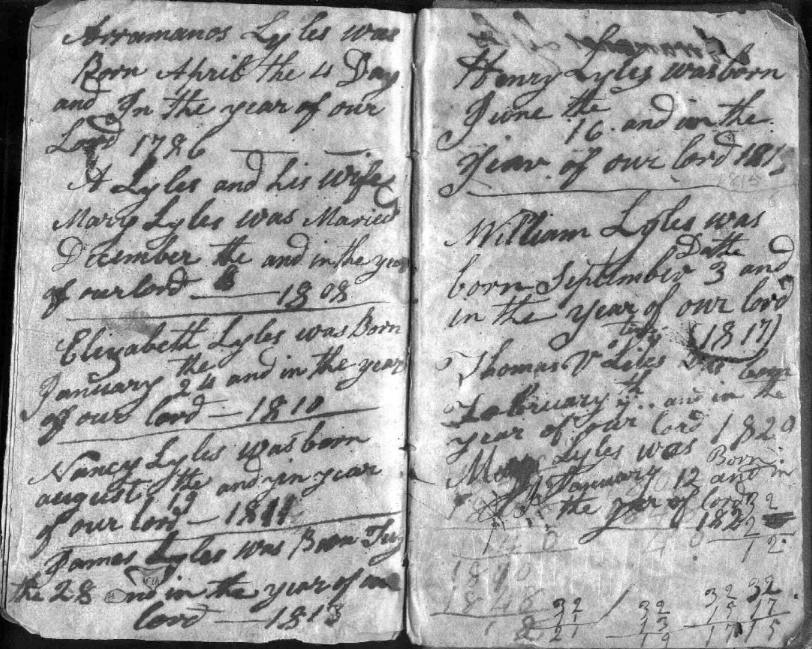 Arramanos Lyles was
Born April the 4 Day
and In the year of our
Lord 1786
A Lyles and his wife
Mary Lyles was Maried
December the and in the year
of our lord — 1808
Elizabeth Lyles was Born
January the 24 and in the year
of our lord — 1810
Nancy Lyles was born
august the 19 and in year
of our lord — 1811
James Lyles was Born
the 28 and in the year of our
lord — 1813
Henry Lyles was born
June the
16 and in the
year of our lord 1815
1815
William Lyles was
Datte
born September 3 and
in the year of our lord
(1817)
Thomas V Liles was born
February and in the
year of our lord 1820
Lyles was Born
January 12 and in
the year of lord
182
1810
1848
32 32 32 32
21 13 15 17
19 17 15